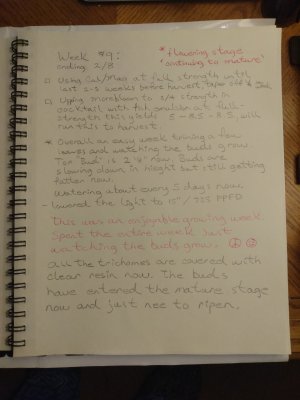 Week #9:
ending 2/8
* flowering stage
"continuing to mature"
□ Using Cal/Mag at full strength until
last 2-3 weeks before harvest, taper off
□ Upping morebloom to 3/4 strength in
cocktail with fish emulsion at full-
strength this yields 8 - 8.5, will
run this to harvest.
* Overall an easy week trimming a few
leaves and watching the buds grow.
Top "Bud" is 2 1/4" now. Buds are
slowing down in hieght but still getting
fatter now.
Watering about every 5 days now.
- lowered the light to 15" / 725 PPFD
This was an enjoyable growing week.
Spent the entire week just
watching the buds grow.
all the trichomes are covered with
clear resin now. The buds
have entered the mature stage
now and just nee to ripen.